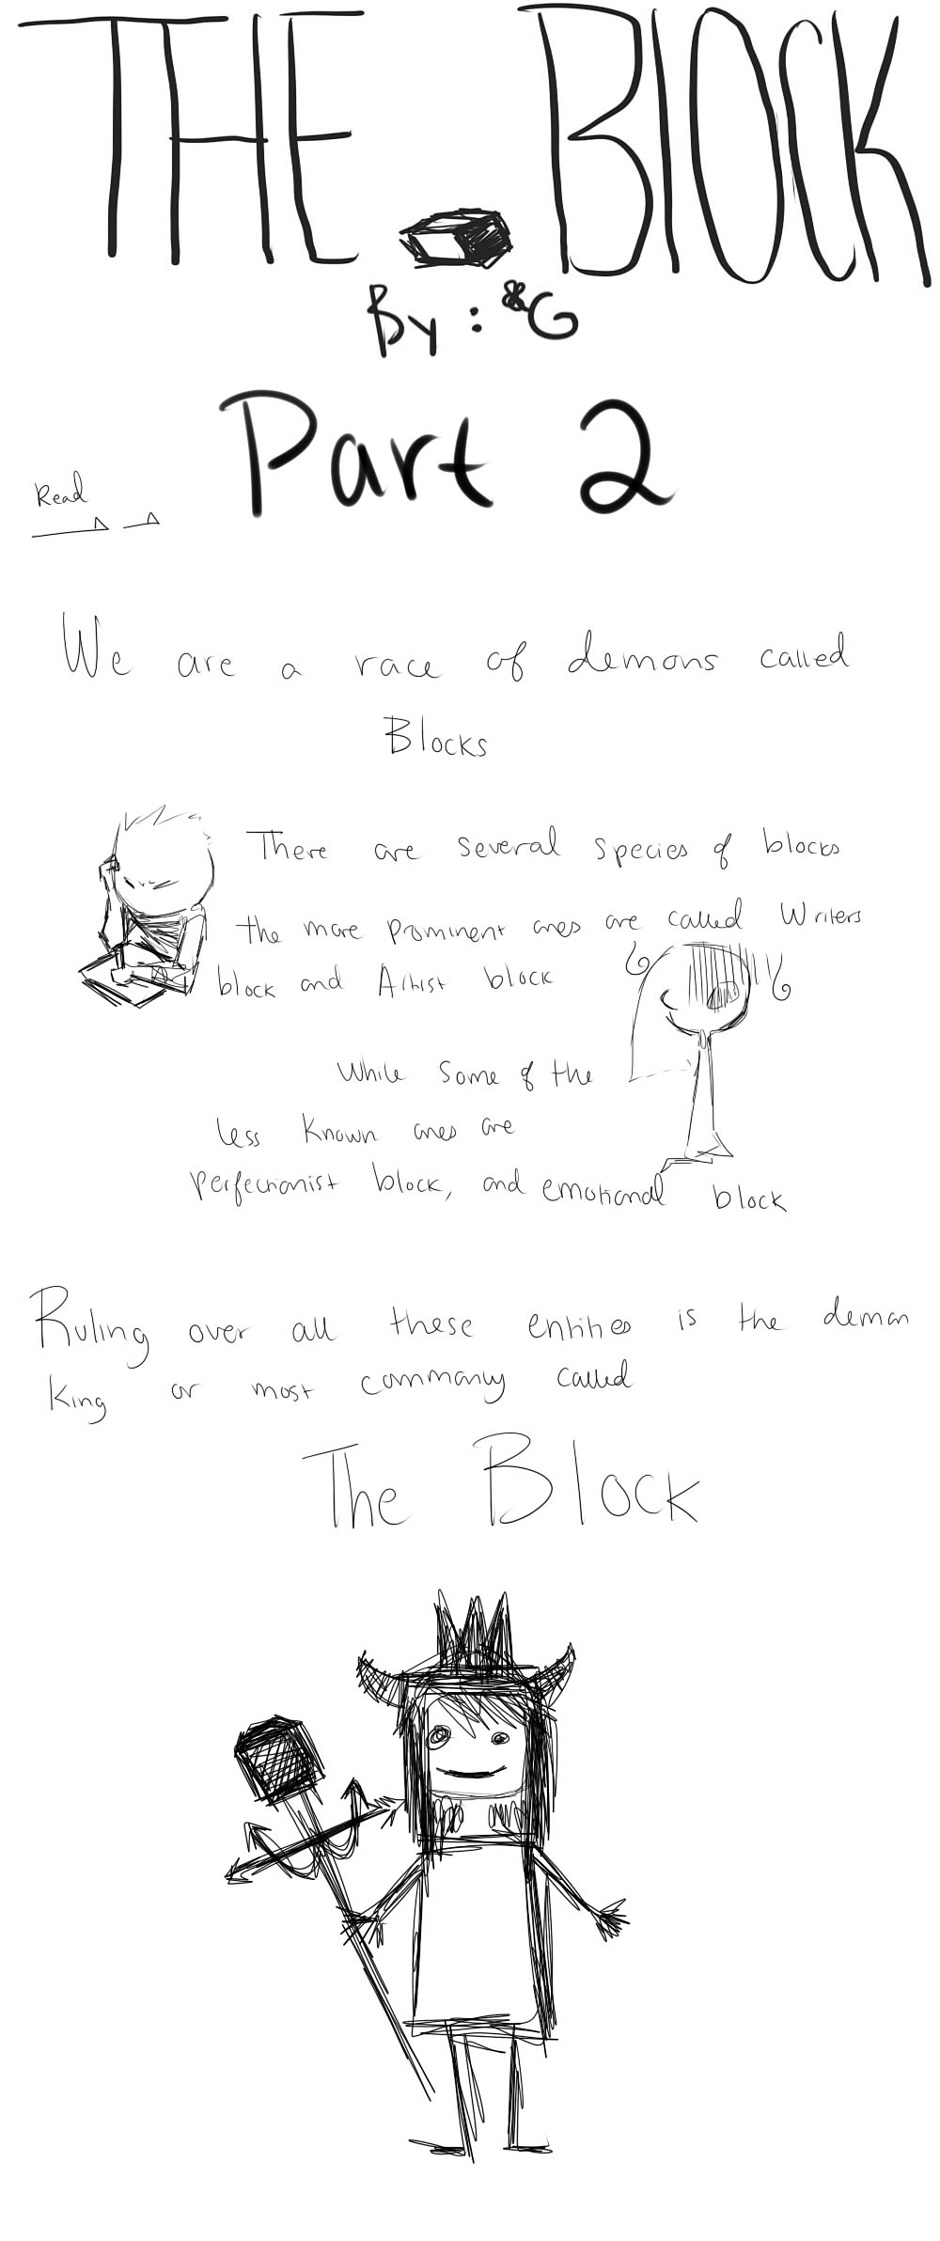 THE BlOCK
By: &G
Part 2
Read
We are a race of demons called
Blocks
There are several species of blocks
the more prominent ones are called Writers
block and Artist block
While some of the
less known ones are
perfectionist block, and emotional block
Ruling over all these entities is the demon
king or most commonly called
The Block